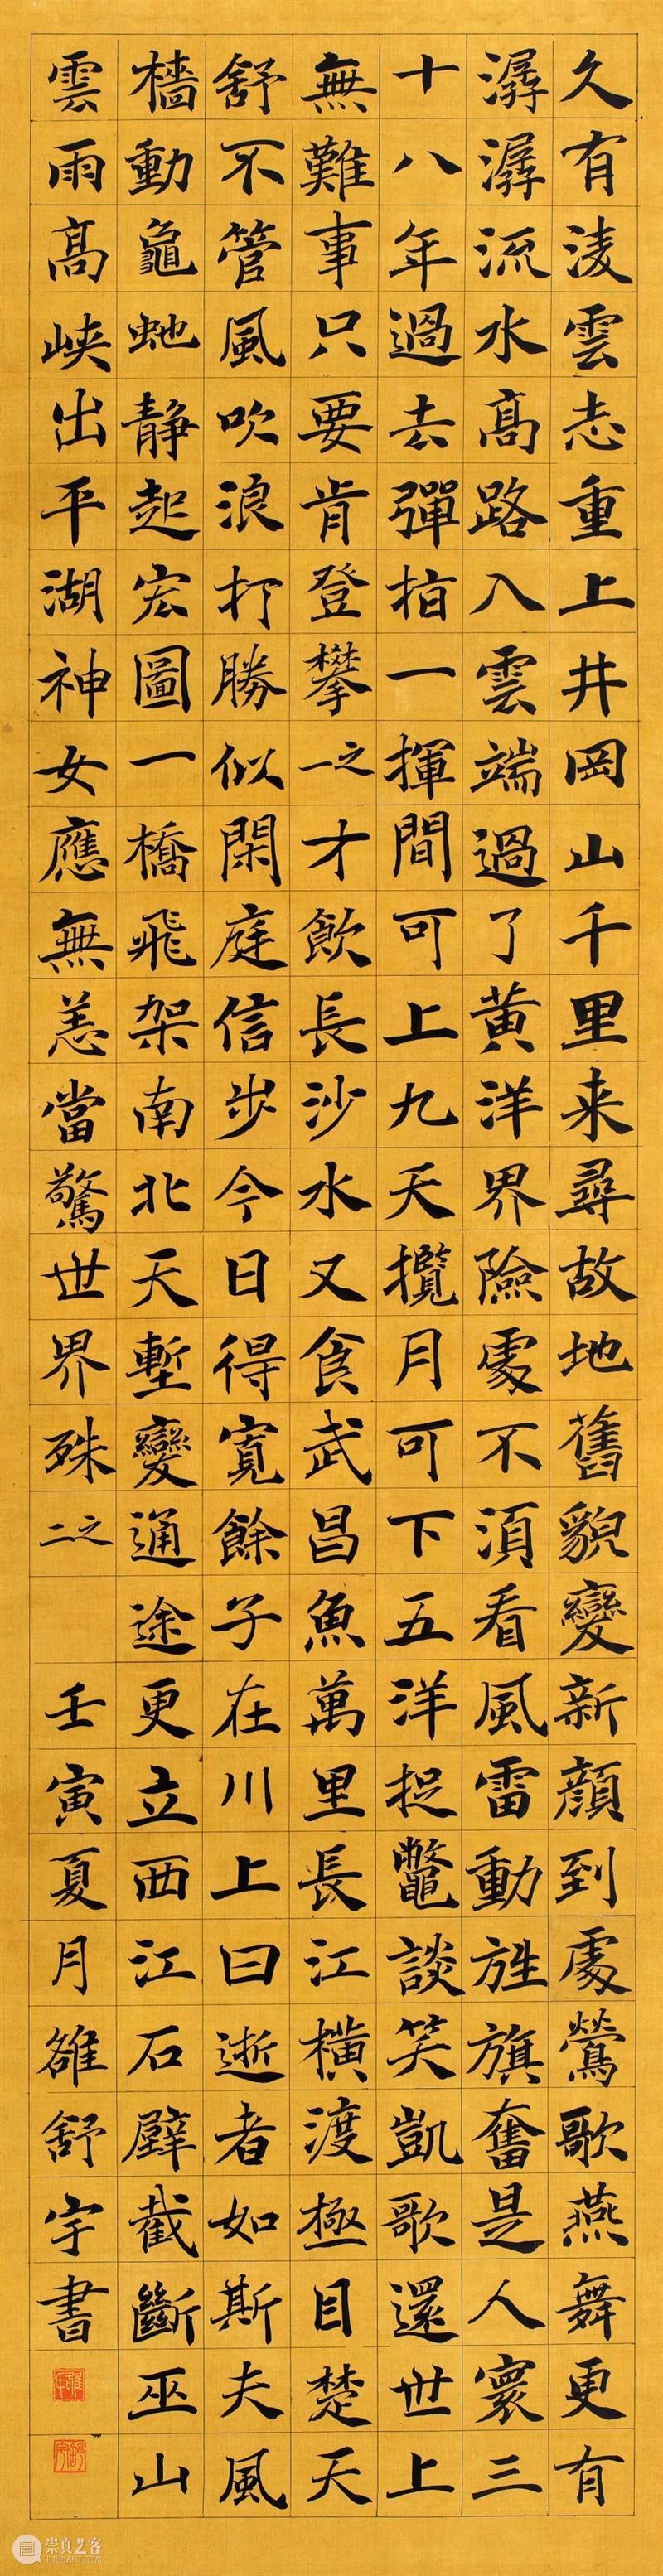 久有淩雲志重上井岡山千里来尋故地舊貌變新顔到處鶯歌燕舞更有
潺潺流水髙路入雲端過了黄洋界險處不須看風雷動旌旗奮是人寰三
十八年過去彈指一揮間可上九天攬月可下五洋捉鼈談笑凱歌還世上
無難事只要肯登攀之一才飲長沙水又食武昌魚萬里長江横渡極目楚天
舒不管風吹浪打勝似閑庭信步今日得寬餘子在川上曰逝者如斯夫風
檣動龜虵静起宏圖一橋飛架南北天塹變通途更立西江石壁截斷巫山
雲雨髙峽出平湖神女應無恙當驚世界殊之二
壬寅夏月雒舒宇書
崇真艺客